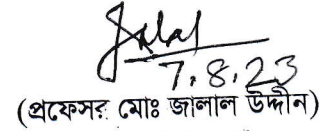 Jalal
7.8.23
(প্রফেসর মোঃ জালাল উদ্দীন)